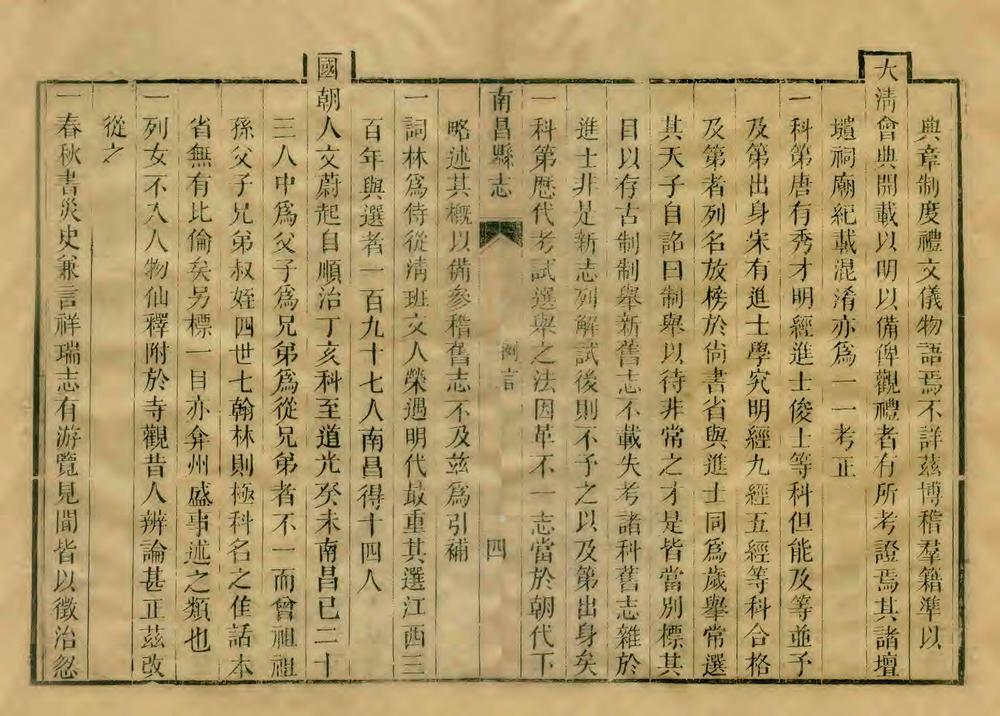 典章制度禮文儀物語焉不詳茲博稽羣籍準以
大淸會典開載以明以備俾觀禮者有所考證焉其諸壇
壝祠廟紀載混淆亦爲一一考正
一科第唐有秀才明經進士俊士等科但能及等並予
及第出身宋有進士學究明經九經五經等科合格
及第者列名放榜於尙書省與進士同爲歲舉常選
其天子自詔曰制舉以待非常之才是皆當別標其
目以存古制制舉新舊志不載失考諸科舊志雜於
進士非是新志列解試後則不予之以及第出身矣
一科第歷代考試選舉之法因革不一志當於朝代下
南昌縣志
例言
四
略述其槪以備參稽舊志不及茲爲引補
一詞林爲侍從淸班文人榮遇明代最重其選江西三
百年與選者一百九十七人南昌得十四人
國朝人文蔚起自順治丁亥科至道光癸未南昌已二十
三人中爲父子爲兄弟爲從兄弟者不一而曾祖祖
孫父子兄弟叔姪四世七翰林則極科名之隹話本
省無有比倫矣另標一目亦弇州盛事述之類也
一列女不入人物仙釋附於寺觀昔人辨論甚正茲改
從之
一春秋書災史兼言祥瑞志有游覽見聞皆以徵治忽